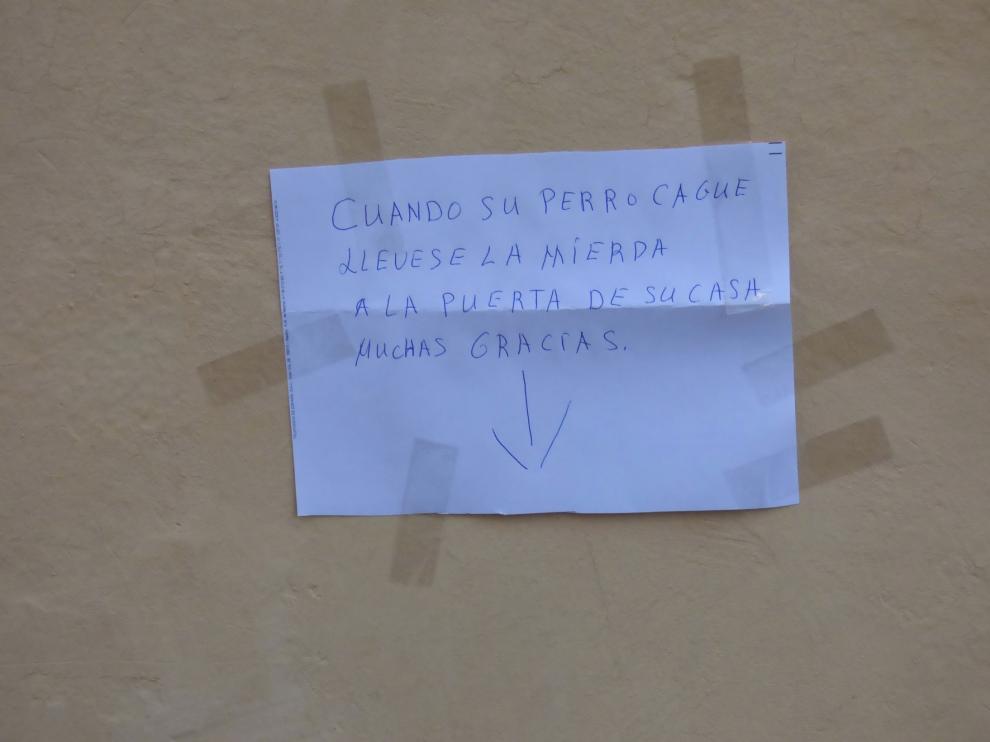 CUANDO SU PERRO CAGUE
LLEVESE LA MIERDA
A LA PUERTA DE SU CASA
MUCHAS GRACIAS.